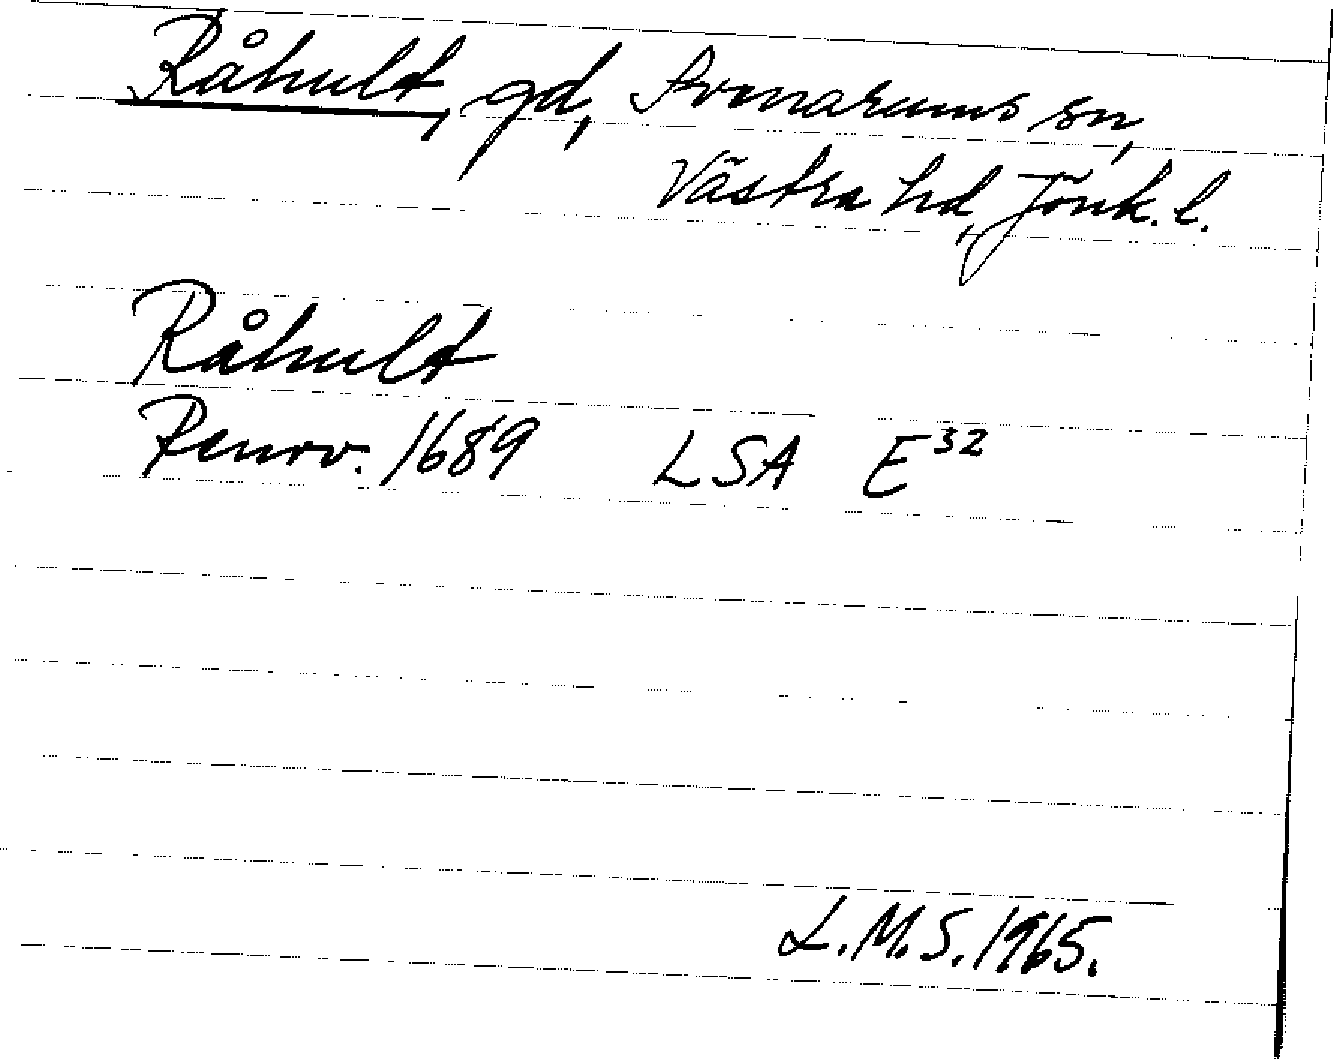 Råhult, gd, Svenarums sn,
Västra hd, Jönk. l.
Råhult
Renov. 1689 LSA E32
L.M.S. 1965.